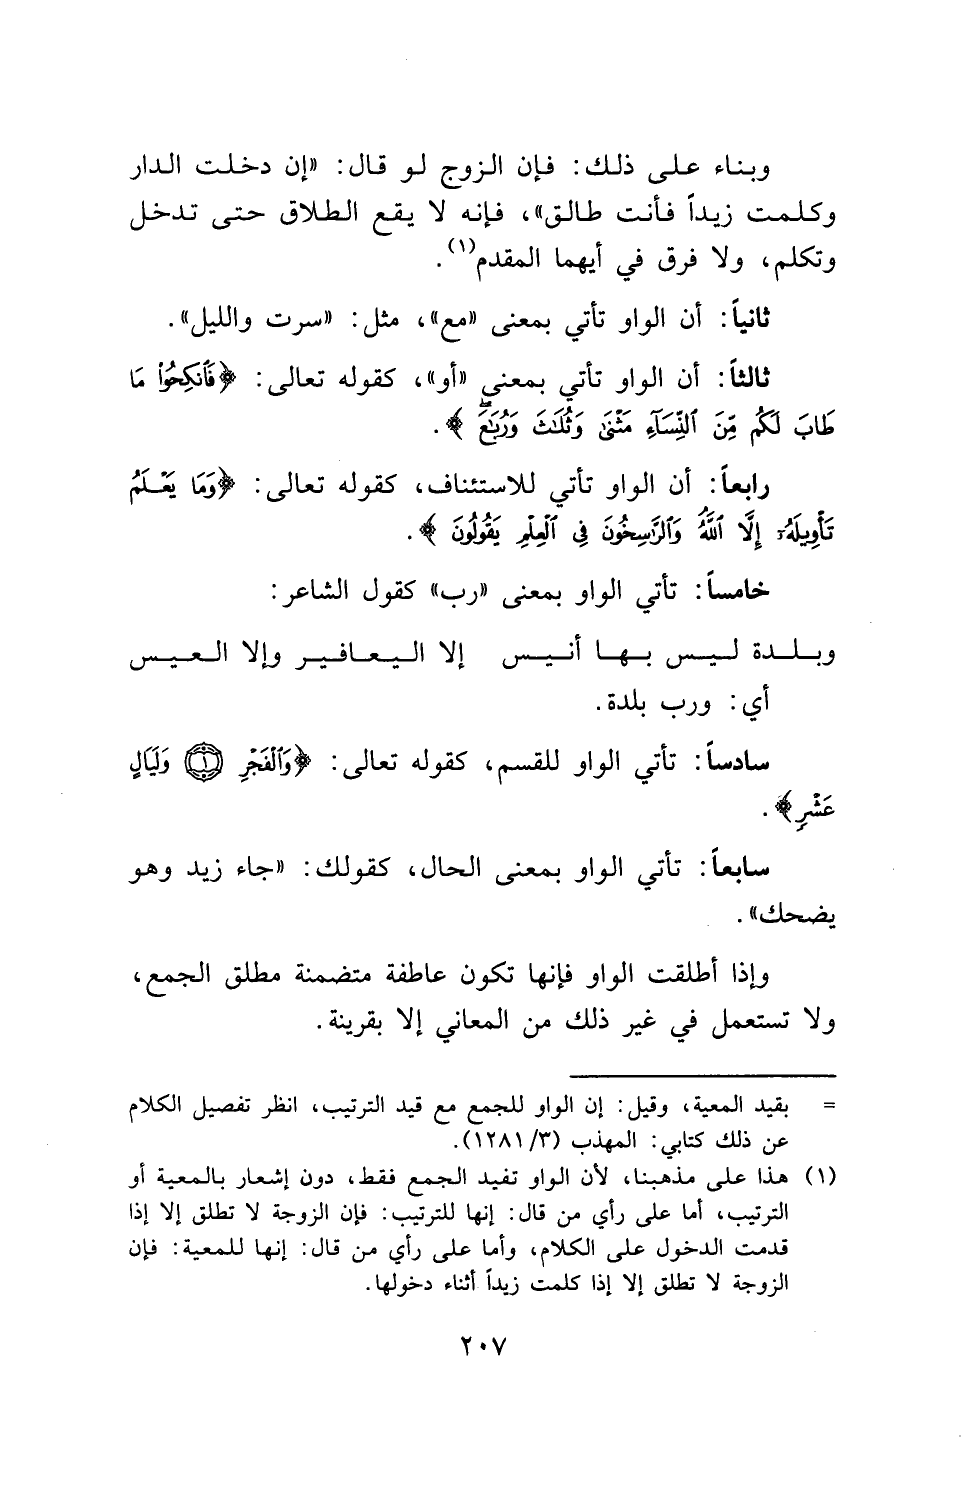 وبناء على ذلك: فإن الزوج لو قال: «إن دخلت الدار
وكلمت زيداً فأنت طالق»، فإنه لا يقع الطلاق حتى تدخل
وتكلم، ولا فرق في أيهما المقدم(١).
ثانياً: أن الواو تأتي بمعنى «مع»، مثل: «سرت والليل».
ثالثاً: أن الواو تأتي بمعنى «أو»، كقوله تعالى: ﴿فَٱنكِحُوا۟ مَا
طَابَ لَكُم مِّنَ ٱلنِّسَآءِ مَثْنَىٰ وَثُلَٰثَ وَرُبَٰعَۖ﴾.
رابعاً: أن الواو تأتي للاستئناف، كقوله تعالى: ﴿وَمَا يَعْلَمُ
تَأْوِيلَهُۥٓ إِلَّا ٱللَّهُۗ وَٱلرَّٰسِخُونَ فِى ٱلْعِلْمِ يَقُولُونَ﴾.
خامساً: تأتي الواو بمعنى «رب» كقول الشاعر:
وبلدة ليس بها أنيس إلا اليعافير وإلا العيس
أي: ورب بلدة.
سادساً: تأتي الواو للقسم، كقوله تعالى: ﴿وَٱلْفَجْرِ ۝١ وَلَيَالٍ
عَشْرٍ﴾.
سابعاً: تأتي الواو بمعنى الحال، كقولك: «جاء زيد وهو
يضحك».
وإذا أطلقت الواو فإنها تكون عاطفة متضمنة مطلق الجمع،
ولا تستعمل في غير ذلك من المعاني إلا بقرينة.
= بقيد المعية، وقيل: إن الواو للجمع مع قيد الترتيب، انظر تفصيل الكلام
عن ذلك كتابي: المهذب (٣/ ١٢٨١).
(١) هذا على مذهبنا، لأن الواو تفيد الجمع فقط، دون إشعار بالمعية أو
الترتيب، أما على رأي من قال: إنها للترتيب: فإن الزوجة لا تطلق إلا إذا
قدمت الدخول على الكلام، وأما على رأي من قال: إنها للمعية: فإن
الزوجة لا تطلق إلا إذا كلمت زيداً أثناء دخولها.
٢٠٧